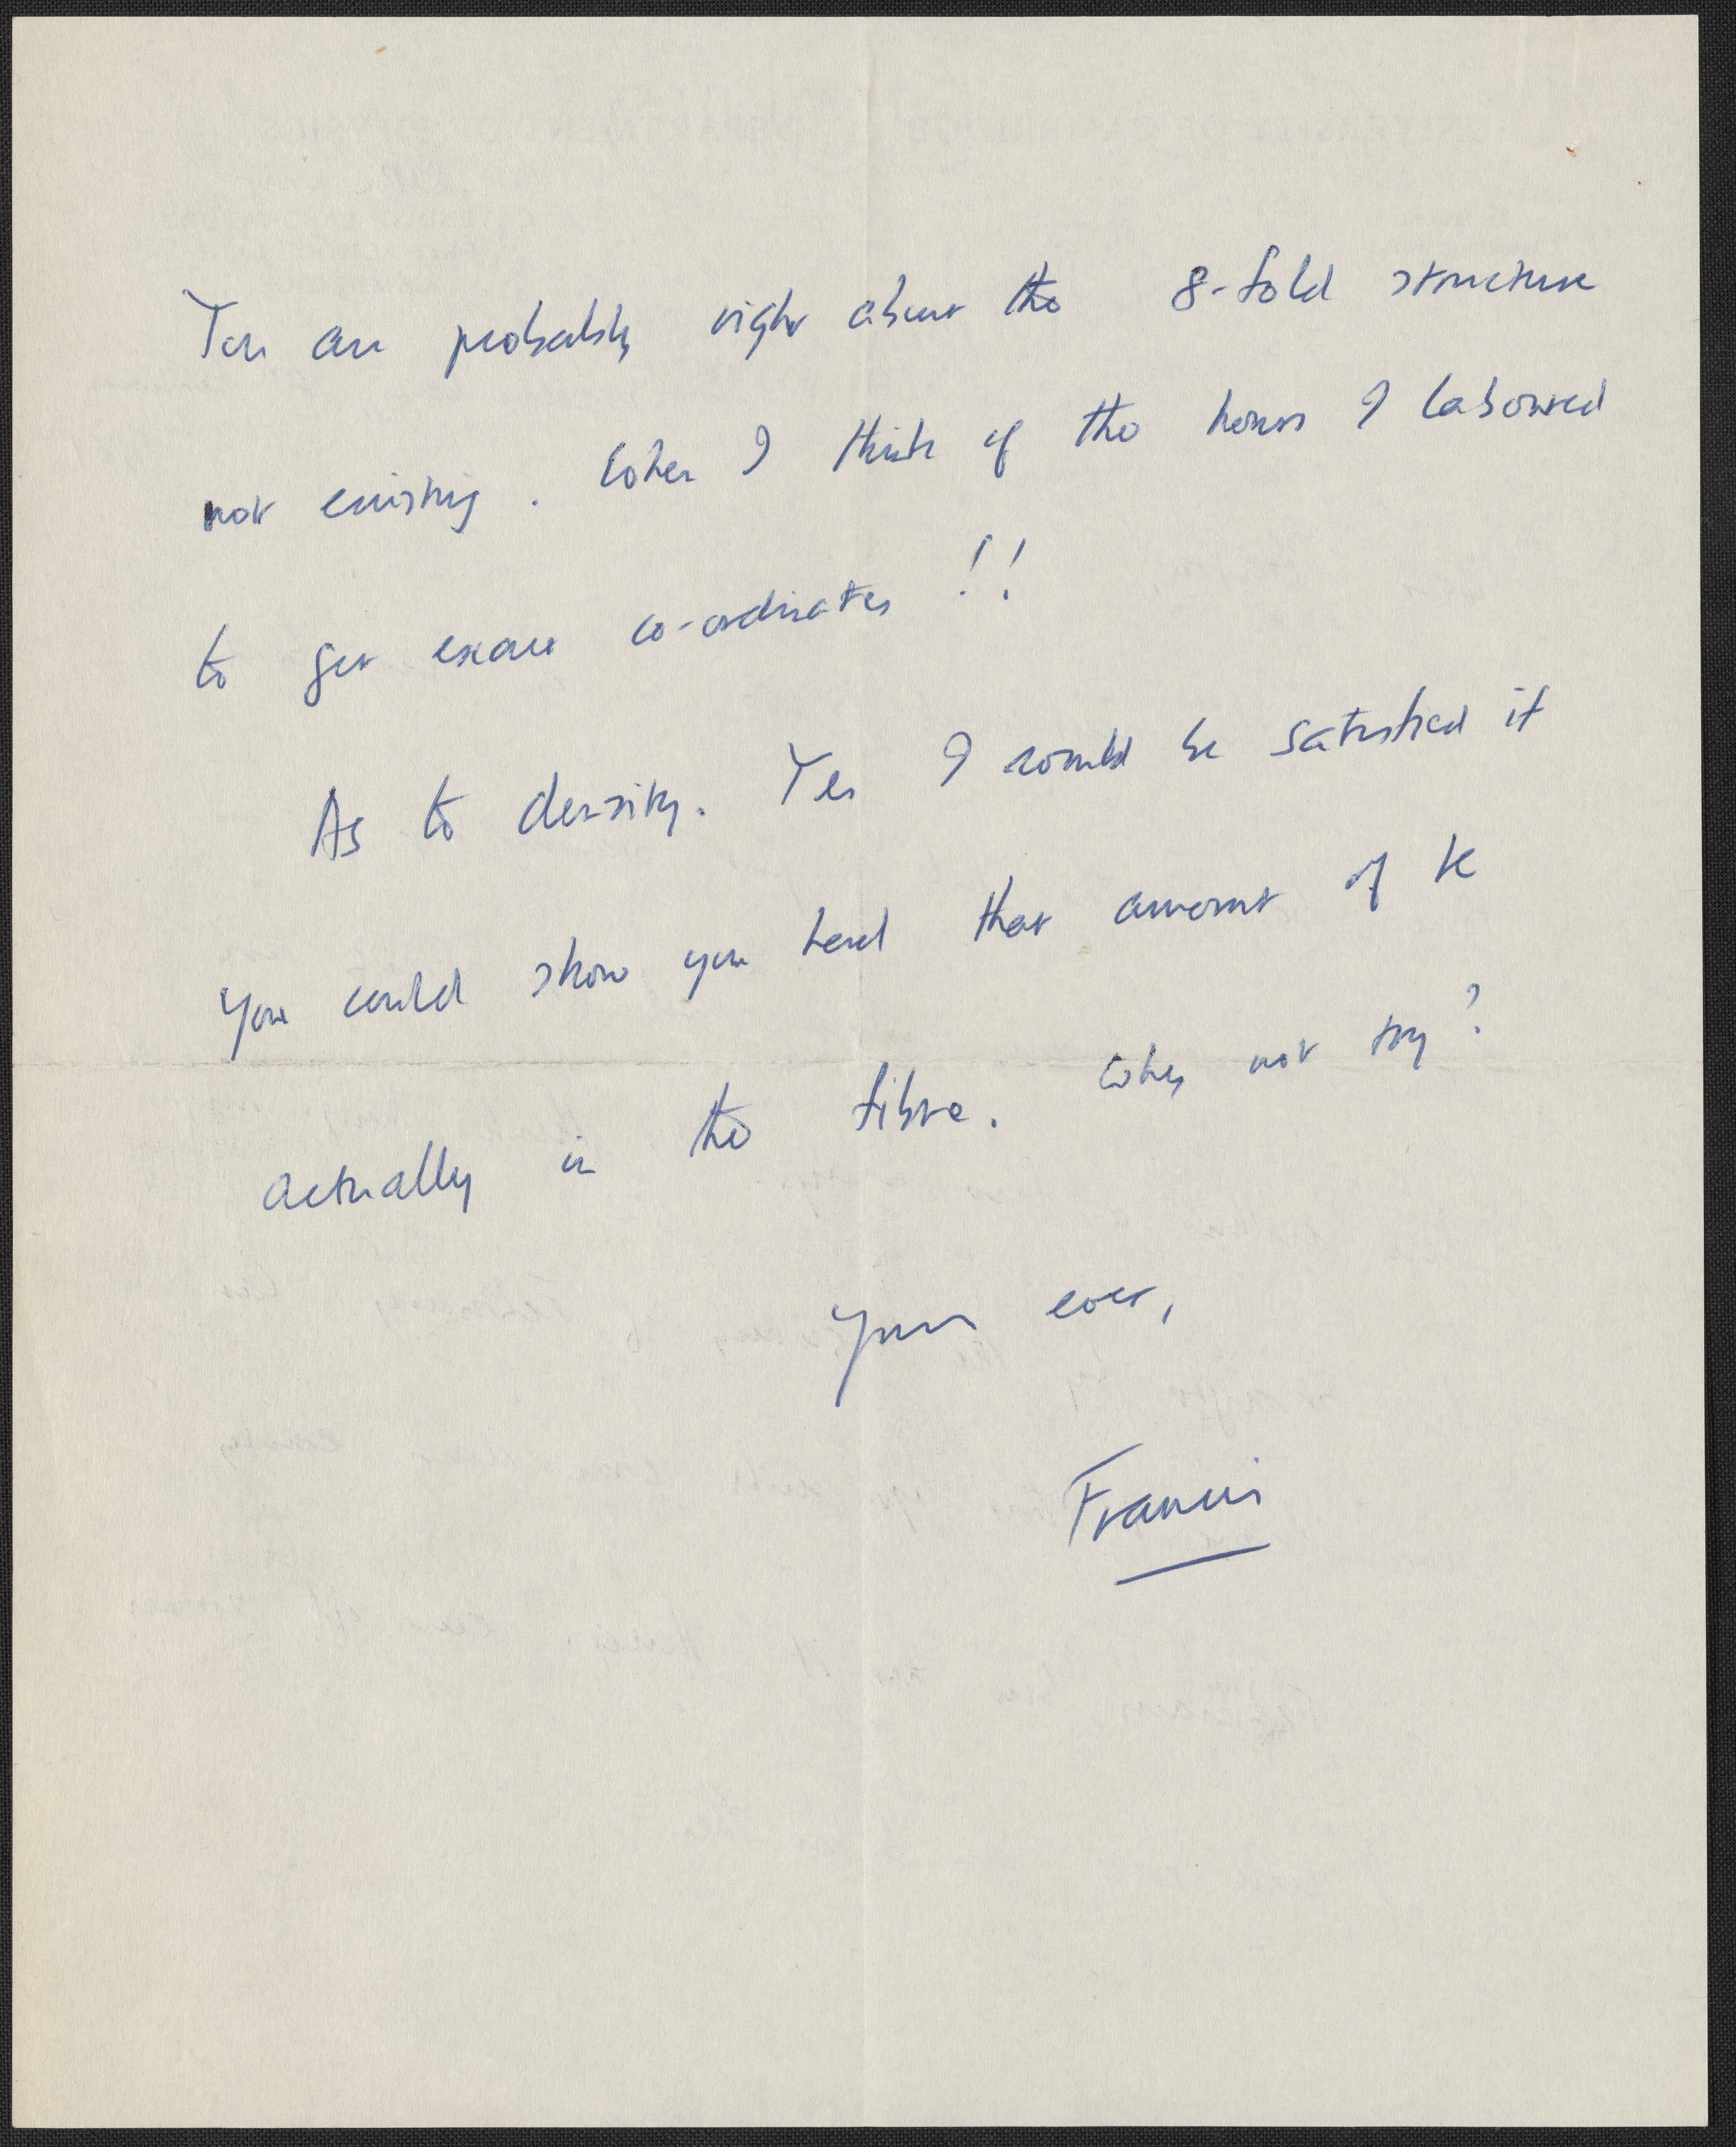 You are probably right about the 8-fold structure
not existing. When I think of the hours I laboured
to get exact co-ordinates !!
As to density. Yes I would be satisfied if
you could show you had that amount of K
actually in the fibre. Why not try?
Yours ever,
Francis